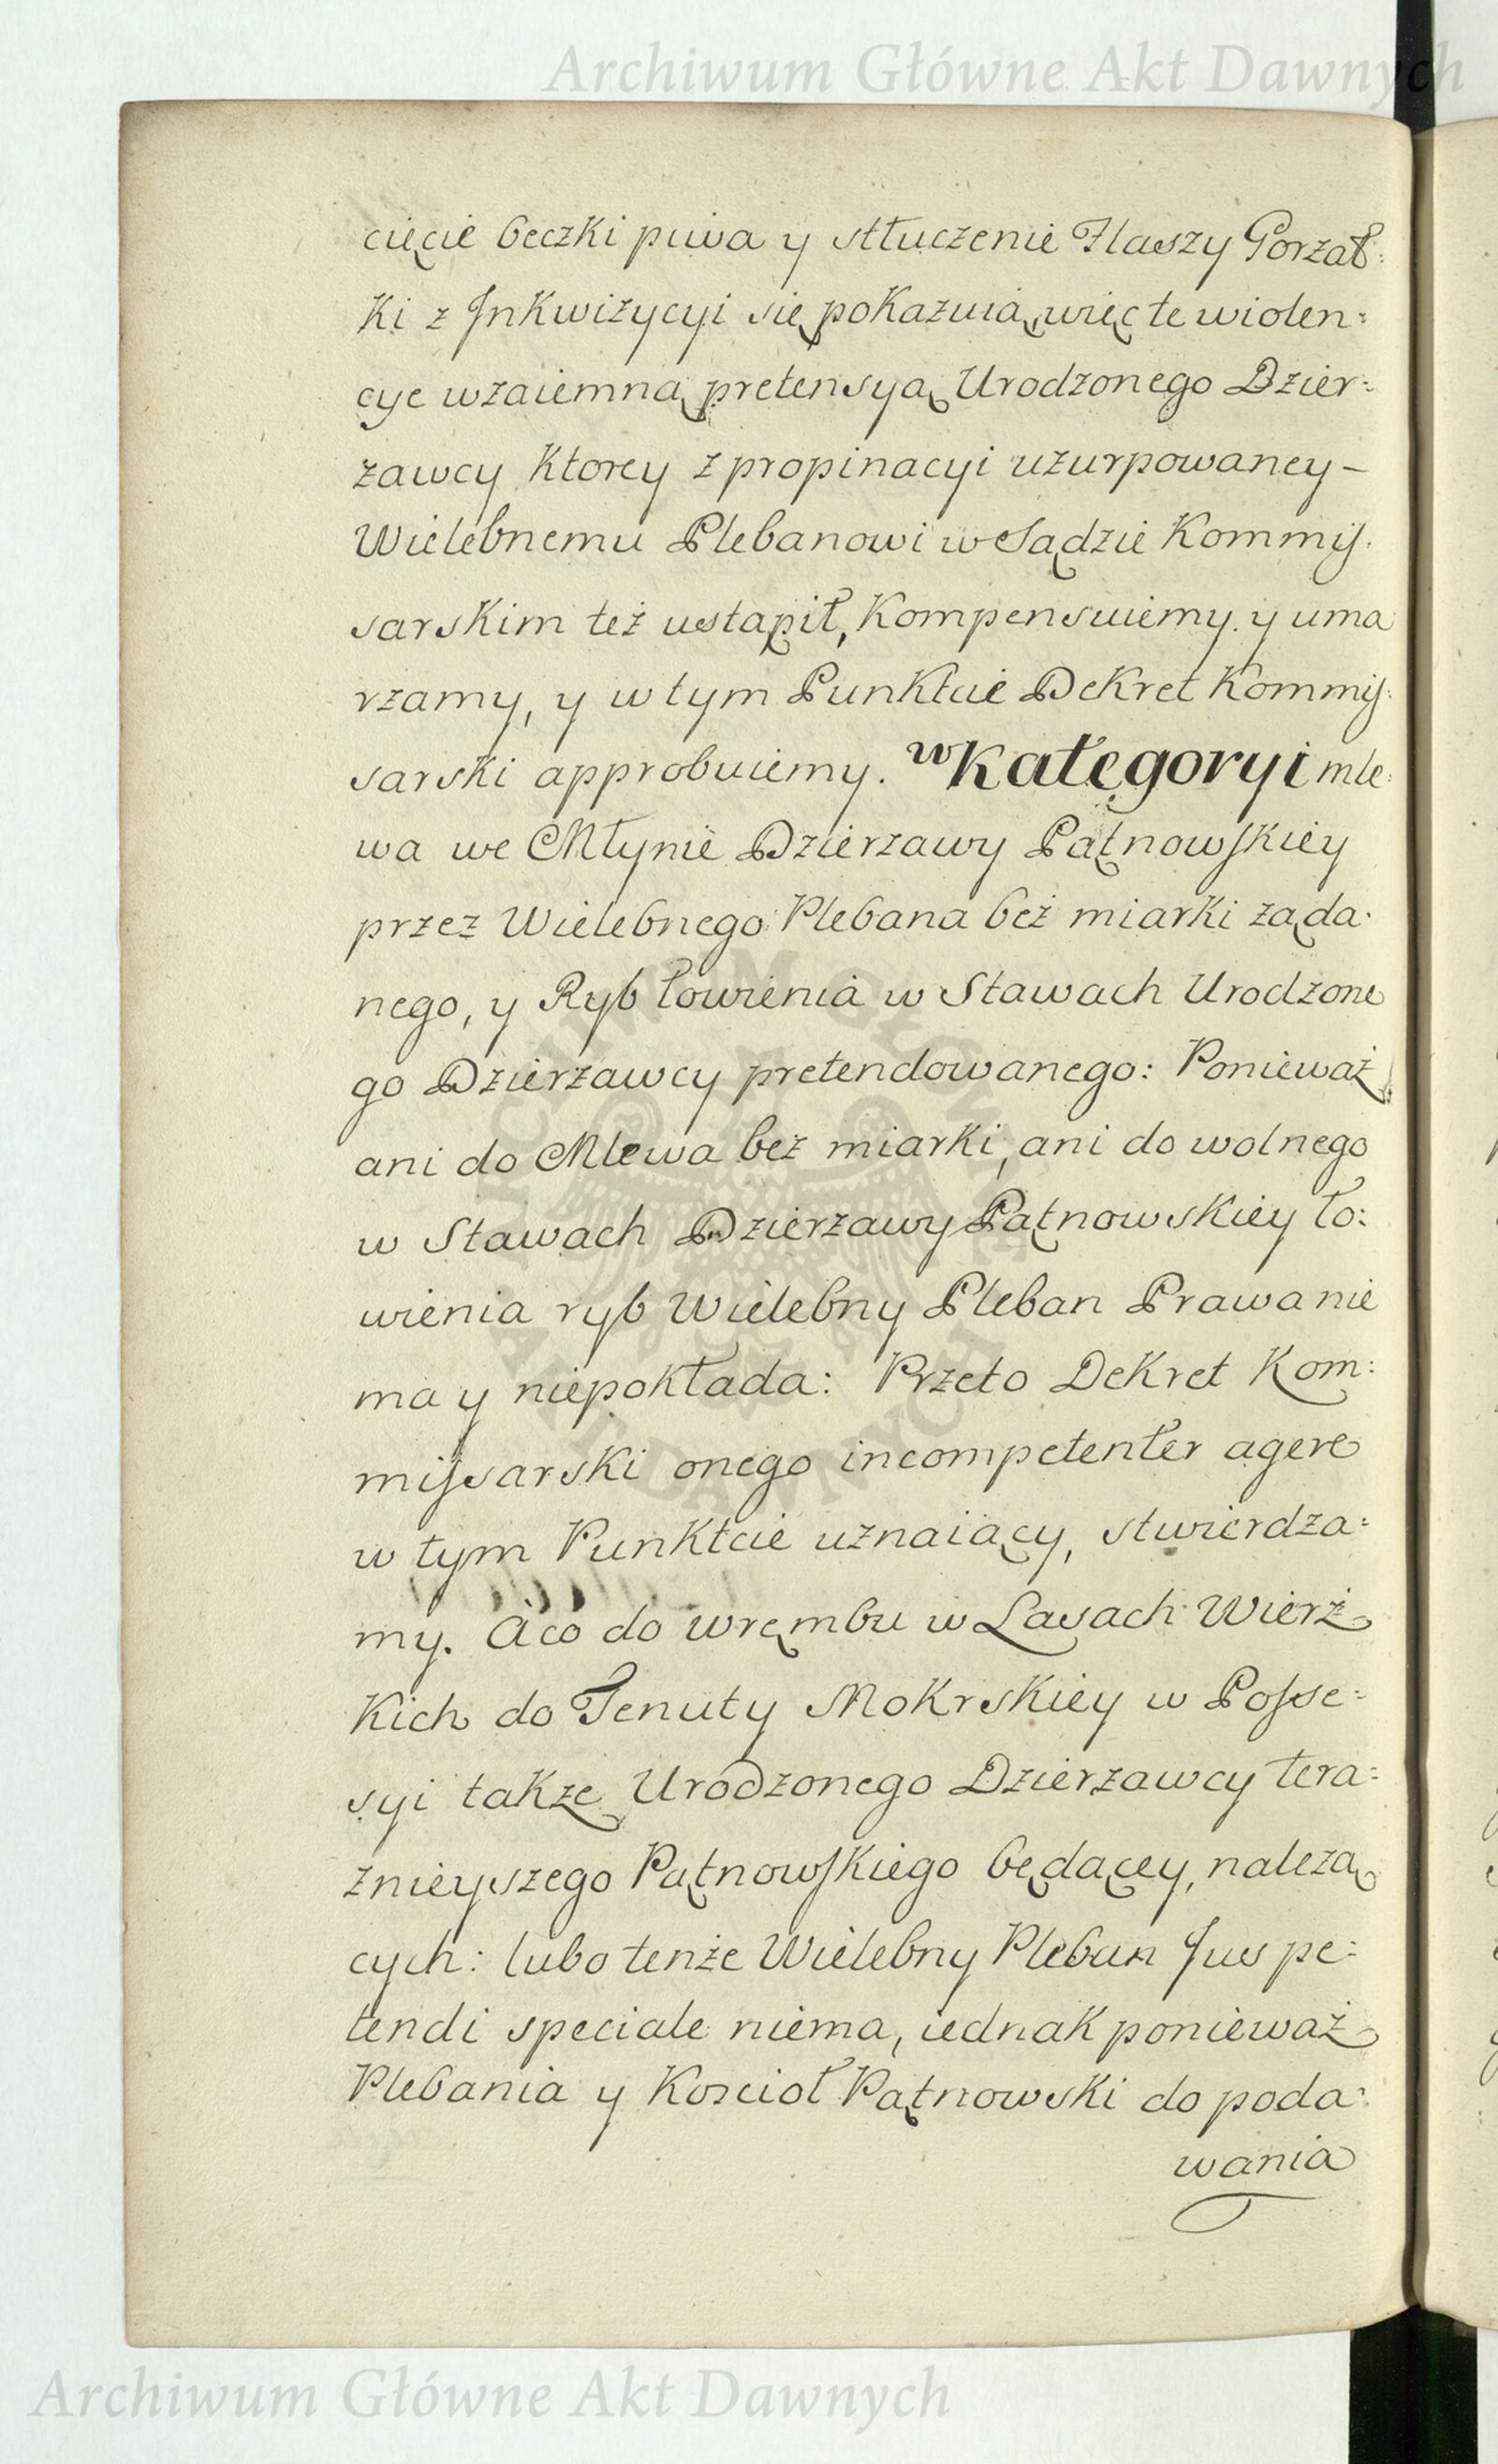 Archiwum Główne Akt Dawnych
cięcie beczki piwa y stłuczenie Flaszy Gorzał:
ki z Jnkwizycyi się pokazuią, więc te wiolen:
cye wzaiemną pretensyą Urodzonego Dzier:
zawcy ktorey z propinacyi uzurpowaney –
Wielebnemu Plebanowi w Sądzie Kommis:
sarskim też ustąpił, kompensuiemy y uma
rzamy, y w tym Punktcie Dekret Kommis:
sarski approbuiemy. w Kategoryi mle:
wa we Młynie Dzierzawy Pątnowskiey
przez Wielebnego Plebana beż miarki ząda:
nego, y Ryb łowienia w Stawach Urodzone
go Dzierżawcy pretendowanego: Ponieważ
ani do Mlewa beż miarki, ani do wolnego
w Stawach Dzierżawy Pątnowskiey ło:
wienia ryb Wielebny Pleban Prawa nie
ma y niepokłada: Przeto Dekret Kom:
missarski onego incompetenter agere
w tym Punktcie uznaiący, stwierdza:
my. A co do wrębmu w Lasach Wierż
kich do Tenuty Mokrskiey w Posse:
syi takze Urodzonego Dzierzawcy tera:
znieyszego Pątnowskiego będącey, należą
cych: lubo tenże Wielebny Pleban Jus pe:
tendi speciale niema, iednak ponieważ
Plebania y Koscioł Pątnowski do poda:
wania
Archiwum Główne Akt Dawnych